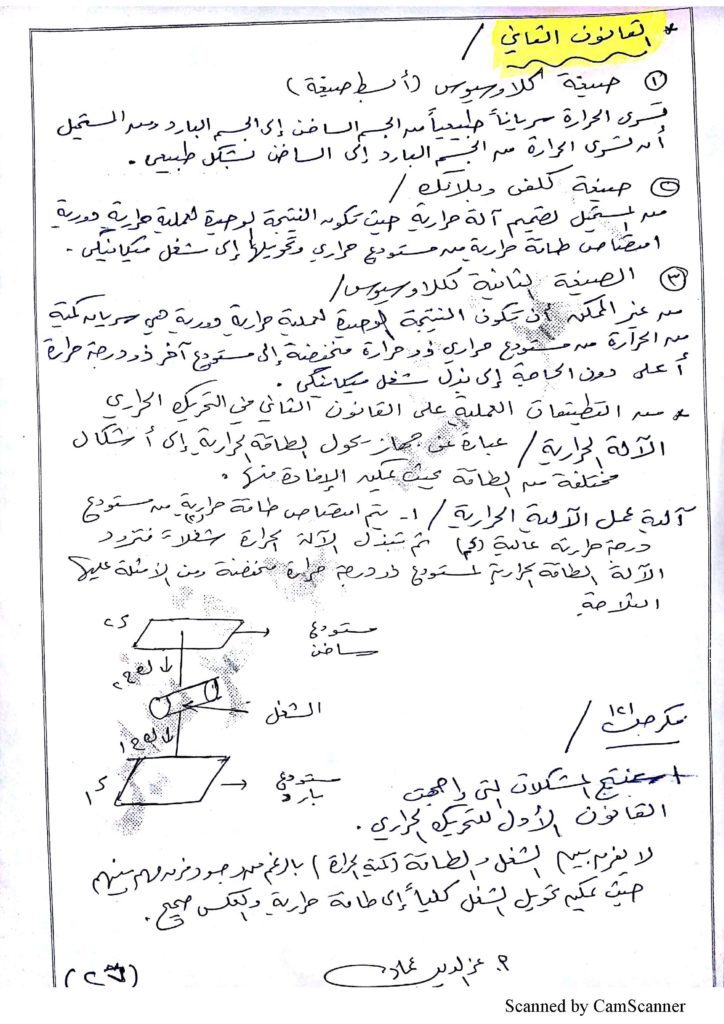 * القانون الثاني /
① صيغة كلاوسيوس (أبسط صيغة)
تسري الحرارة سرياناً طبيعياً من الجسم الساخن إلى الجسم البارد ومن المستحيل
أن تسري الحرارة من الجسم البارد إلى الساخن بشكل طبيعي .
② صيغة كلفن وبلانك /
من المستحيل تصميم آلة حرارية حيث تكون النتيجة الوحيدة لعملية حرارية دورية
امتصاص طاقة حرارية من مستودع حراري وتحويلها إلى شغل ميكانيكي .
③ الصيغة الثانية لكلاوسيوس /
من غير الممكن أن تكون النتيجة الوحيدة لعملية حرارية دورية هي سريان كمية
من الحرارة من مستودع حراري ذو حرارة منخفضة إلى مستودع آخر ذو درجة حرارة
أعلى دون الحاجة إلى بذل شغل ميكانيكي .
* من التطبيقات العملية على القانون الثاني في التحريك الحراري
الآلة الحرارية / عبارة عن جهاز يحول الطاقة الحرارية إلى أشكال
مختلفة من الطاقة بحيث يمكن الإفادة منها .
آلية عمل الآلية الحرارية / ١- يتم امتصاص طاقة حرارية من مستودع
درجة حرارته عالية ثم تبذل الآلة الحرارة شغلاً فتزود
الآلة الطاقة الحرارية لمستودع ذو درجة حرارة منخفضة ومن الأمثلة عليها
الثلاجة
د٢
مستودع
ساخن
الشغل
د١
مستودع
بارد
فكر ص١٢١ /
المشكلات التي واجهت
القانون الأول للتحريك الحراري .
لا يفرق بين الشغل والطاقة (كمية الحرارة) بالرغم من وجود فرق مهم بينهم
حيث يمكن تحويل الشغل كلياً إلى طاقة حرارية والعكس صحيح .
م. عز الدين
Scanned by CamScanner